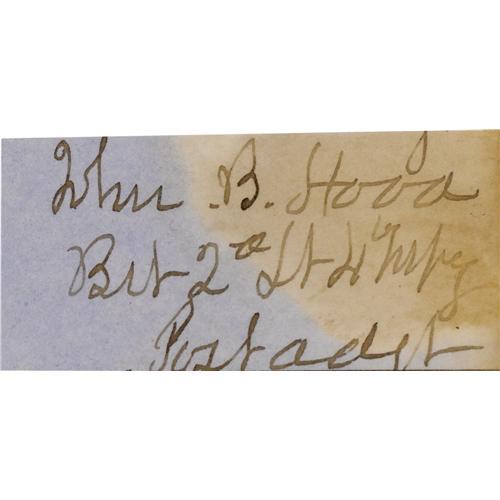 John B. Hood
Bvt 2d Lt 4th Infy
Post adjt